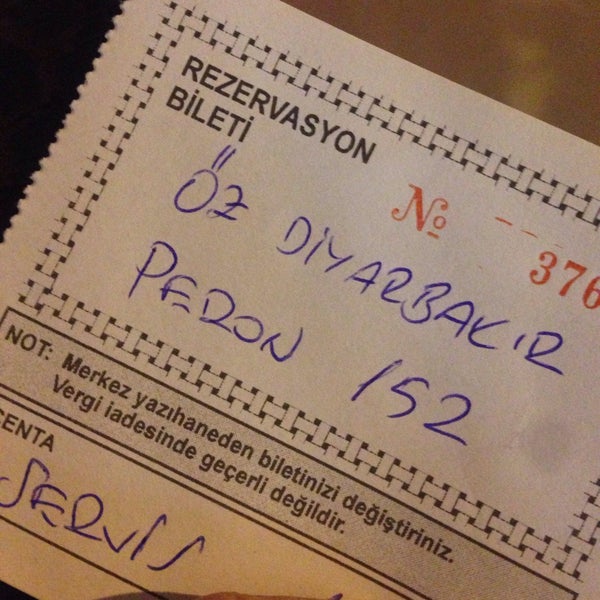 REZERVASYON
BİLETİ
№ 376
ÖZ DİYARBAKIR
PERON 152
NOT: Merkez yazıhaneden biletinizi değiştiriniz.
Vergi iadesinde geçerli değildir.
CENTA
SERVİS